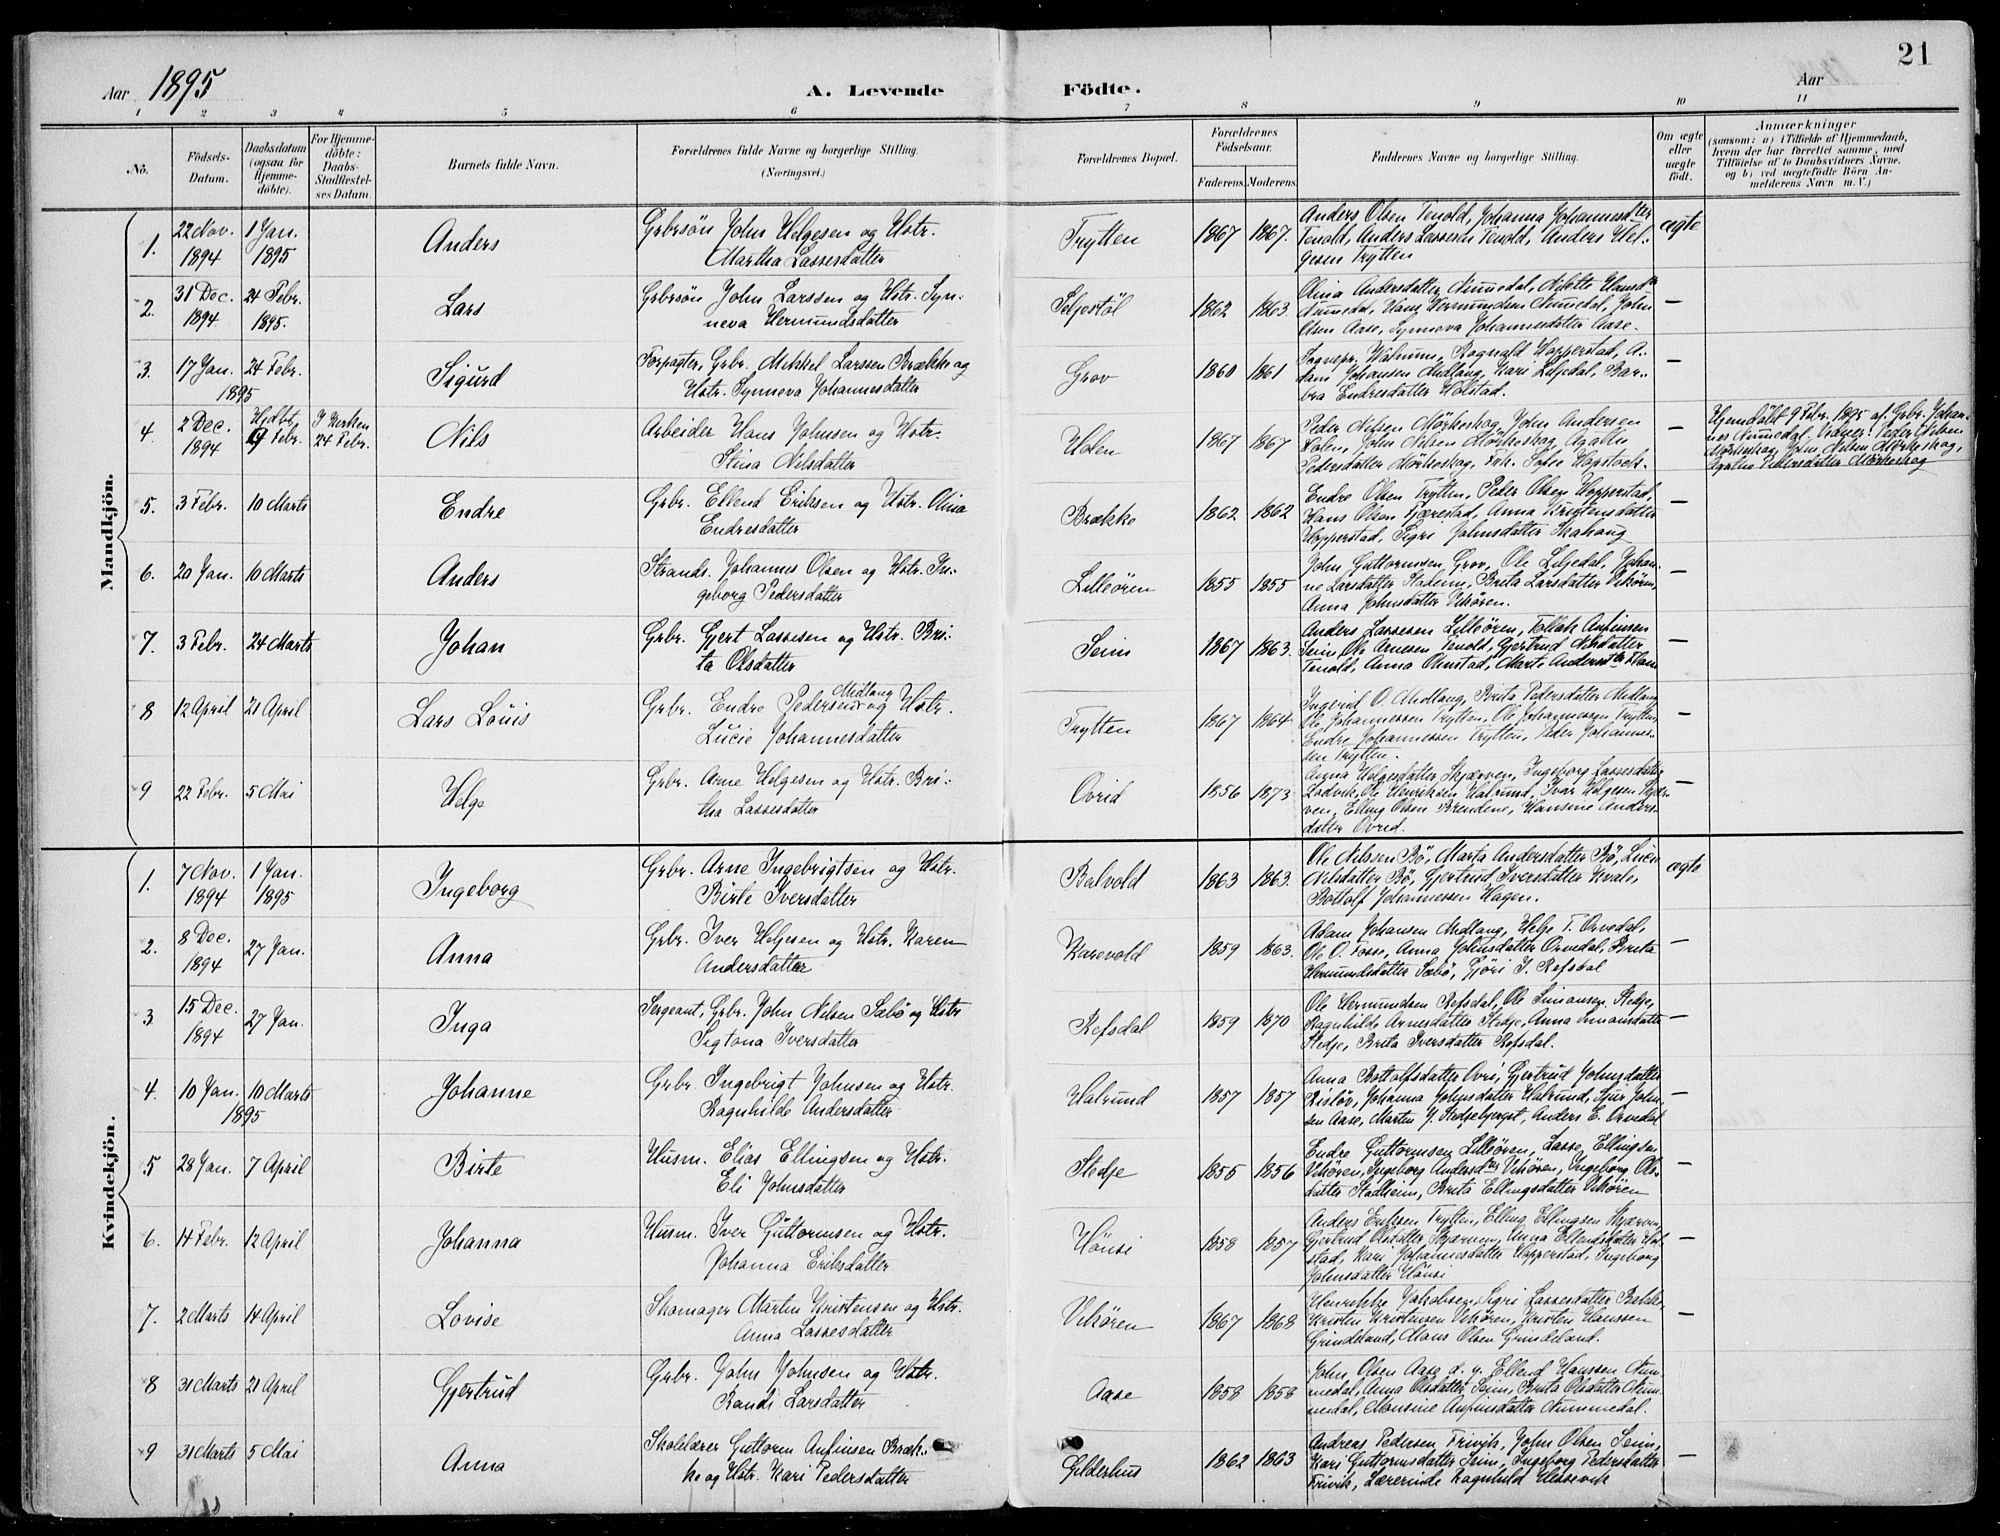 21
Aar 1895
A. Levende Födte.
Aar
1 2 3 4 5 6 7 8 9 10 11
No.
Födsels-Datum.
Daabsdatum (ogsaa for Hjemmedöbte).
For Hjemmedöbte: Daabs-Stadfæstelses Datum.
Barnets fulde Navn.
Forældrenes fulde Navne og borgerlige Stilling. (Næringsvei.)
Forældrenes Bopæl.
Forældrenes Födselsaar.
Faderens. Moderens.
Faddernes Navne og borgerlige Stilling.
Om ægte eller uægte födt.
Anmærkninger
(saasom: a) i Tilfælde af Hjemmedaab, hvem der har forrettet samme, med Tilföielse af to Daabsvidners Navne, og b) ved uægtefödte Börn Anmelderens Navn m. V.)
Mandkjön.
1. 22 Nov. 1894 1 Jan. 1895 Anders Grbrsön John Helgesen og Hstr. Martha Lassesdatter Trytten 1867 1867. Anders Olsen Tenold, Johanna Johannesdtter Tenold, Anders Lassesen Tenold, Anders Helgesen Trytten ægte
2. 31 Dec. 1894 24 Febr. 1895. Lars Grbrsön John Larssen og Hstr. Synneva Hermundsdatter Seljestöl 1862 1863. Olina Andersdatter Numedal, Nilette Hansdtr Numedal, Hans Hermundsen Numedal, John Olsen Aase, Synneva Johannesdatter Aase. —
3. 17 Jan. 1895 24 Febr. Sigurd Forpagter, Grbr. Mikkel Larssen Brække og Hstr. Synneva Johannesdatter Grov 1860 1861 Sognepr. Walnum, Ragnald Hopperstad, Adam Johansen Midlang, Kari Liljedal, Barbra Endresdatter Holstad. —
4. 2 Dec. 1894 Hjdbt. 9 Febr. I Kirken 24 Febr. Nils Arbeider Hans Johnsen og Hstr. Stina Nilsdatter Holen 1867 1867 Peder Nilsen Mörkeskog, John Andersen Holen, John Nilsen Mörkeskog, Agathe Pedersdatter Mörkeskog, Frk. Sofie Hopstock. — Hjemdöbt 9 Febr. 1895 af Grbr. Johannes Numedal. Vidner: Peder Nilsen Mörkeskog, John Nilsen Mörkeskog, Agathe Pedersdatter Mörkeskog
5. 3 Febr. 10 Marts Endre Grbr. Ellend Eriksen og Hstr. Olina Endresdatter Brække 1862 1862 Endre Olsen Trytten, Peder Olsen Hopperstad, Hans Olsen Tjærestad, Anna Kristensdatter Hopperstad, Sigri Johnsdatter Skahaug —
6. 20 Jan. 10 Marts Anders Strands. Johannes Olsen og Hstr. Ingeborg Pedersdatter Lilleören 1855 1855 John Guttormsen Grov, Ole Liljedal, Johanne Larsdatter Stadeim, Brita Larsdatter Vikören, Anna Johnsdatter Vikören. —
7. 3 Febr. 24 Marts Johan Grbr. Gjert Lassesen og Hstr. Brita Olsdatter Seim 1867 1863. Anders Lassesen Lilleören, Tollak Anfinsen Seim, Ole Arnesen Tenold, Gjertrud Nilsdatter Tenold, Anna Olmstad, Mart. —
8 12 April 21 April Lars Louis Grbr. Endre Pedersen Midlang og Hstr. Lucie Johannesdatter Trytten 1867 1864. Ingerid O. Midlang, Brita Pedersdatter Midlang, Ole Johannessen Trytten, Ole Johannessen Trytten, Endre Johannessen Trytten, Peder Johannessen Trytten. —
9 22 Febr. 5 Mai Helge Grbr. Arne Helgesen og Hstr. Britha Lassesdatter Ovrid 1856 1873. Anna Helgesdatter Skjærven, Ingeborg Lassesdatter Lodvik, Ole Henriksen Halrund, Ivar Helgesen Skjerven, Elling Olsen Brendene, Hansine Andersdatter Ovred. —
Kvindekjön.
1. 7 Nov. 1894 1 Jan. 1895 Ingeborg Grbr. Arne Ingebrigtsen og Hstr. Birte Iversdatter Balvold 1863 1863. Ole Nilssen Bö, Marta Andersdatter Bö, Lucie Nilsdatter Bö, Gjertrud Iversdatter Kvale, Bottolf Johannessen Hagen. ægte
2. 8 Dec. 1894 27 Jan. Anna Grbr. Iver Helgesen og Hstr. Karen Andersdatter Karevold 1859 1863. Adam Johansen Midlang, Helje T. Orvedal, Ole O. Fosse, Anna Johnsdatter Orvedal, Brita Hermundsdatter Sæbö, Gjöri I. Refsdal —
3 15 Dec. 1894 27 Jan. Inga Sergeant, Grbr. John Nilsen Sæbö og Hstr. Sigtona Iversdatter Refsdal 1859 1870 Ole Hermundsen Refsdal, Ole Simonsen Stedje, Ragnhilde Arnesdatter Stedje, Anna Simonsdatter Stedje, Brita Iversdatter Refsdal. —
4. 10 Jan. 1895 10 Marts Johanne Grbr. Ingebrigt Johnsen og Hstr. Ragnhilde Andersdatter Halrund 1857 1857 Anna Bottolfsdatter Ovri, Gjertrud Johnsdatter Rislöv, Johanna Johnsdatter Halrund, Sjur Johnsen Aase, Marten J. Stedjebjerget, Anders E. Orvedal —
5 28 Jan. 7 April Birte Husm. Elias Ellingsen og Hstr. Eli Johnsdatter Stedje 1855 1856 Endre Guttormsen Lilleören, Lasse Ellingsen Vikören, Ingeborg Andersdtr Vikören, Ingeborg Olsdatter Stadheim, Brita Ellingsdatter Vikören —
6. 14 Febr. 12 April Johanna Husm. Iver Guttormsen og Hstr. Johanna Eriksdatter Hönsi 1858 1857 Anders Eriksen Trytten, Elling Ellingsen Skjærven, Gjertrud Olsdatter Skjærven, Anna Ellendsdatter Holstad, Kari Johannesdatter Hopperstad, Ingeborg Johnsdatter Hönsi —
7. 2 Marts 14 April Lovise Skomager Martin Kristensen og Hstr. Anna Lassesdatter Vikören 1867 1868 Henrikke Jakobsen, Sigri Lassesdatter Bakke, Kristen Kristensen Vikören, Kristen Hanssen Grindeland, Hans Olsen Grindeland. —
8 31 Marts 21 April Gjertrud Grbr. John Johnsen og Hstr. Randi Larsdatter Aase 1858 1858 John Olsen Aase d. y. Ellend Hanssen Nummedal, Anna Olsdatter Seim, Brita Olsdatter Nummedal, Monsine Anfinsdatter Nummedal. —
9 31 Marts 5 Mai Anna Skolelærer Guttorm Anfinsen Brække og Hstr. Kari Pedersdatter Gilderhus 1862 1863 Andreas Pedersen Frivik, John Olsen Seim, Kari Guttormsdatter Seim, Ingeborg Pedersdatter Frivik, Lærerinde Ragnhild Hessevik —